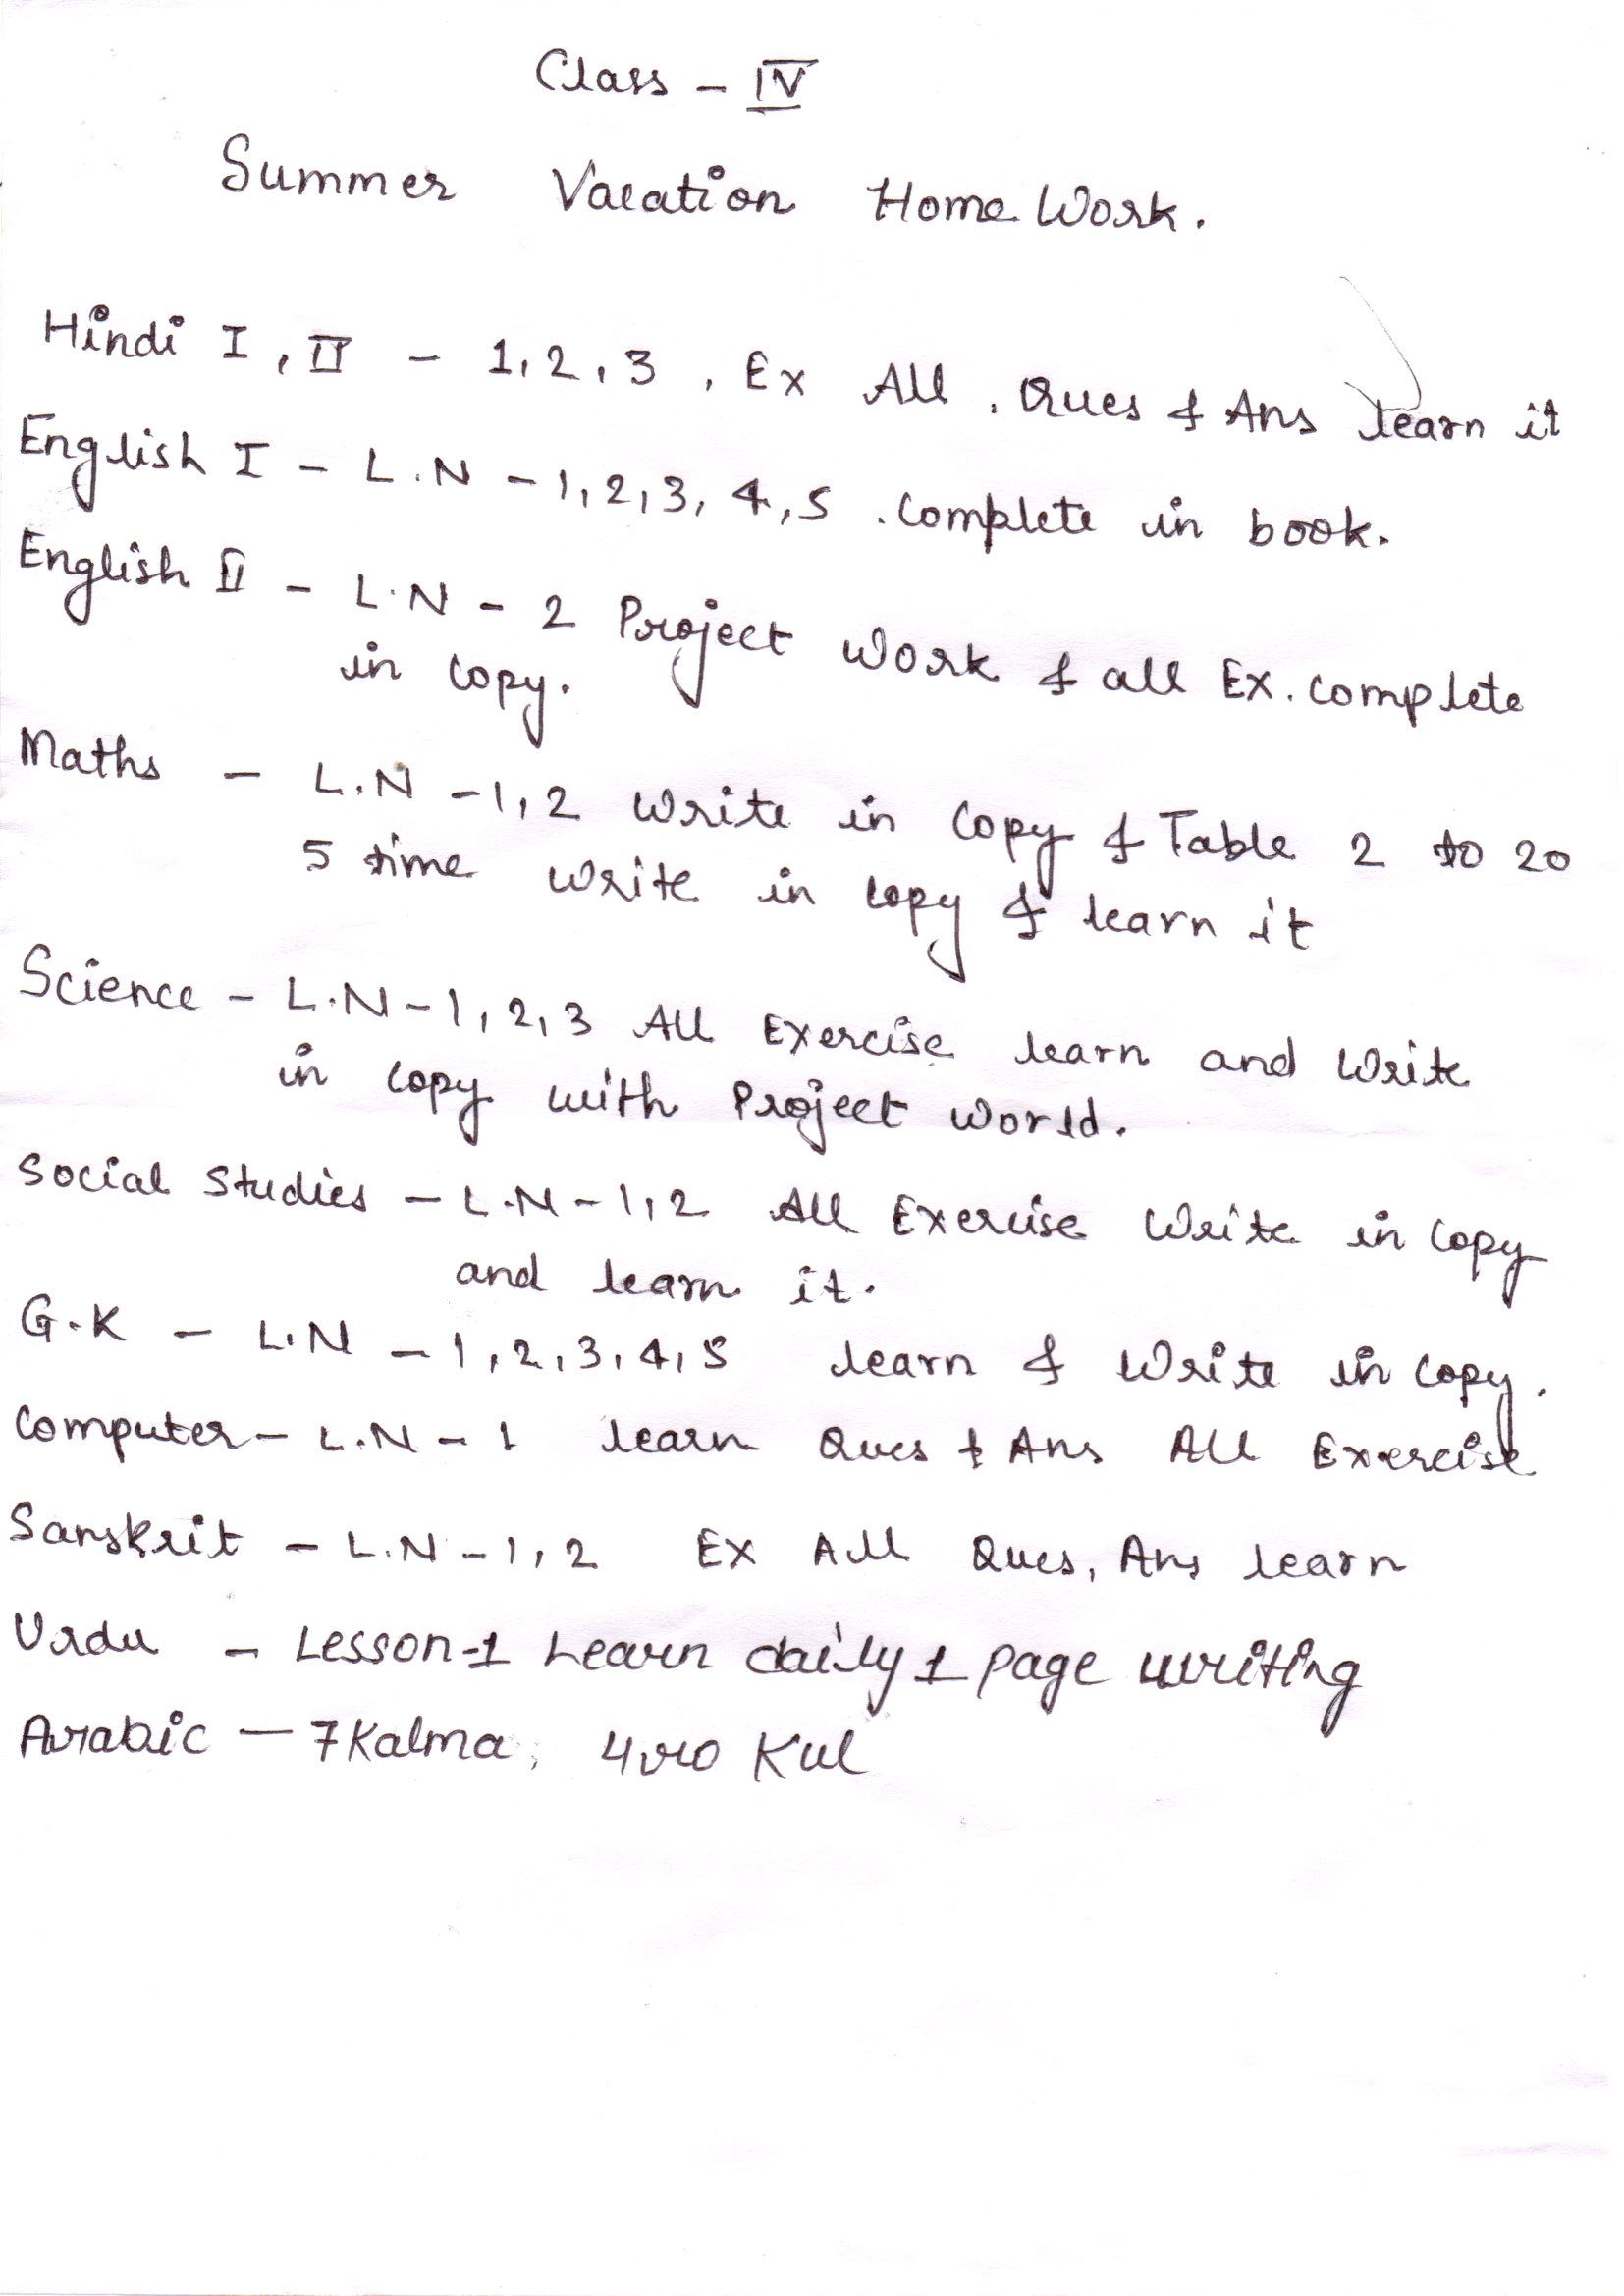 Class - IV
Summer Vacation Home Work.
Hindi I, II - 1, 2, 3, Ex All, Ques & Ans learn it
English I - L.N - 1, 2, 3, 4, 5 . complete in book.
English II - L.N - 2 Project Work & all Ex. complete
in copy.
Maths - L.N - 1, 2 Write in Copy & Table 2 to 20
5 time write in copy & learn it
Science - L.N - 1, 2, 3 All Exercise learn and Write
in copy with Project World.
Social Studies - L.N - 1, 2 All Exercise Write in Copy
and learn it.
G.K - L.N - 1, 2, 3, 4, 5 learn & Write in copy.
Computer - L.N - 1 learn Ques & Ans All Exercise
Sanskrit - L.N - 1, 2 Ex All Ques, Ans learn
Urdu - Lesson-1 Learn daily 1 page writing
Arabic - 7 Kalma, 4 Kul